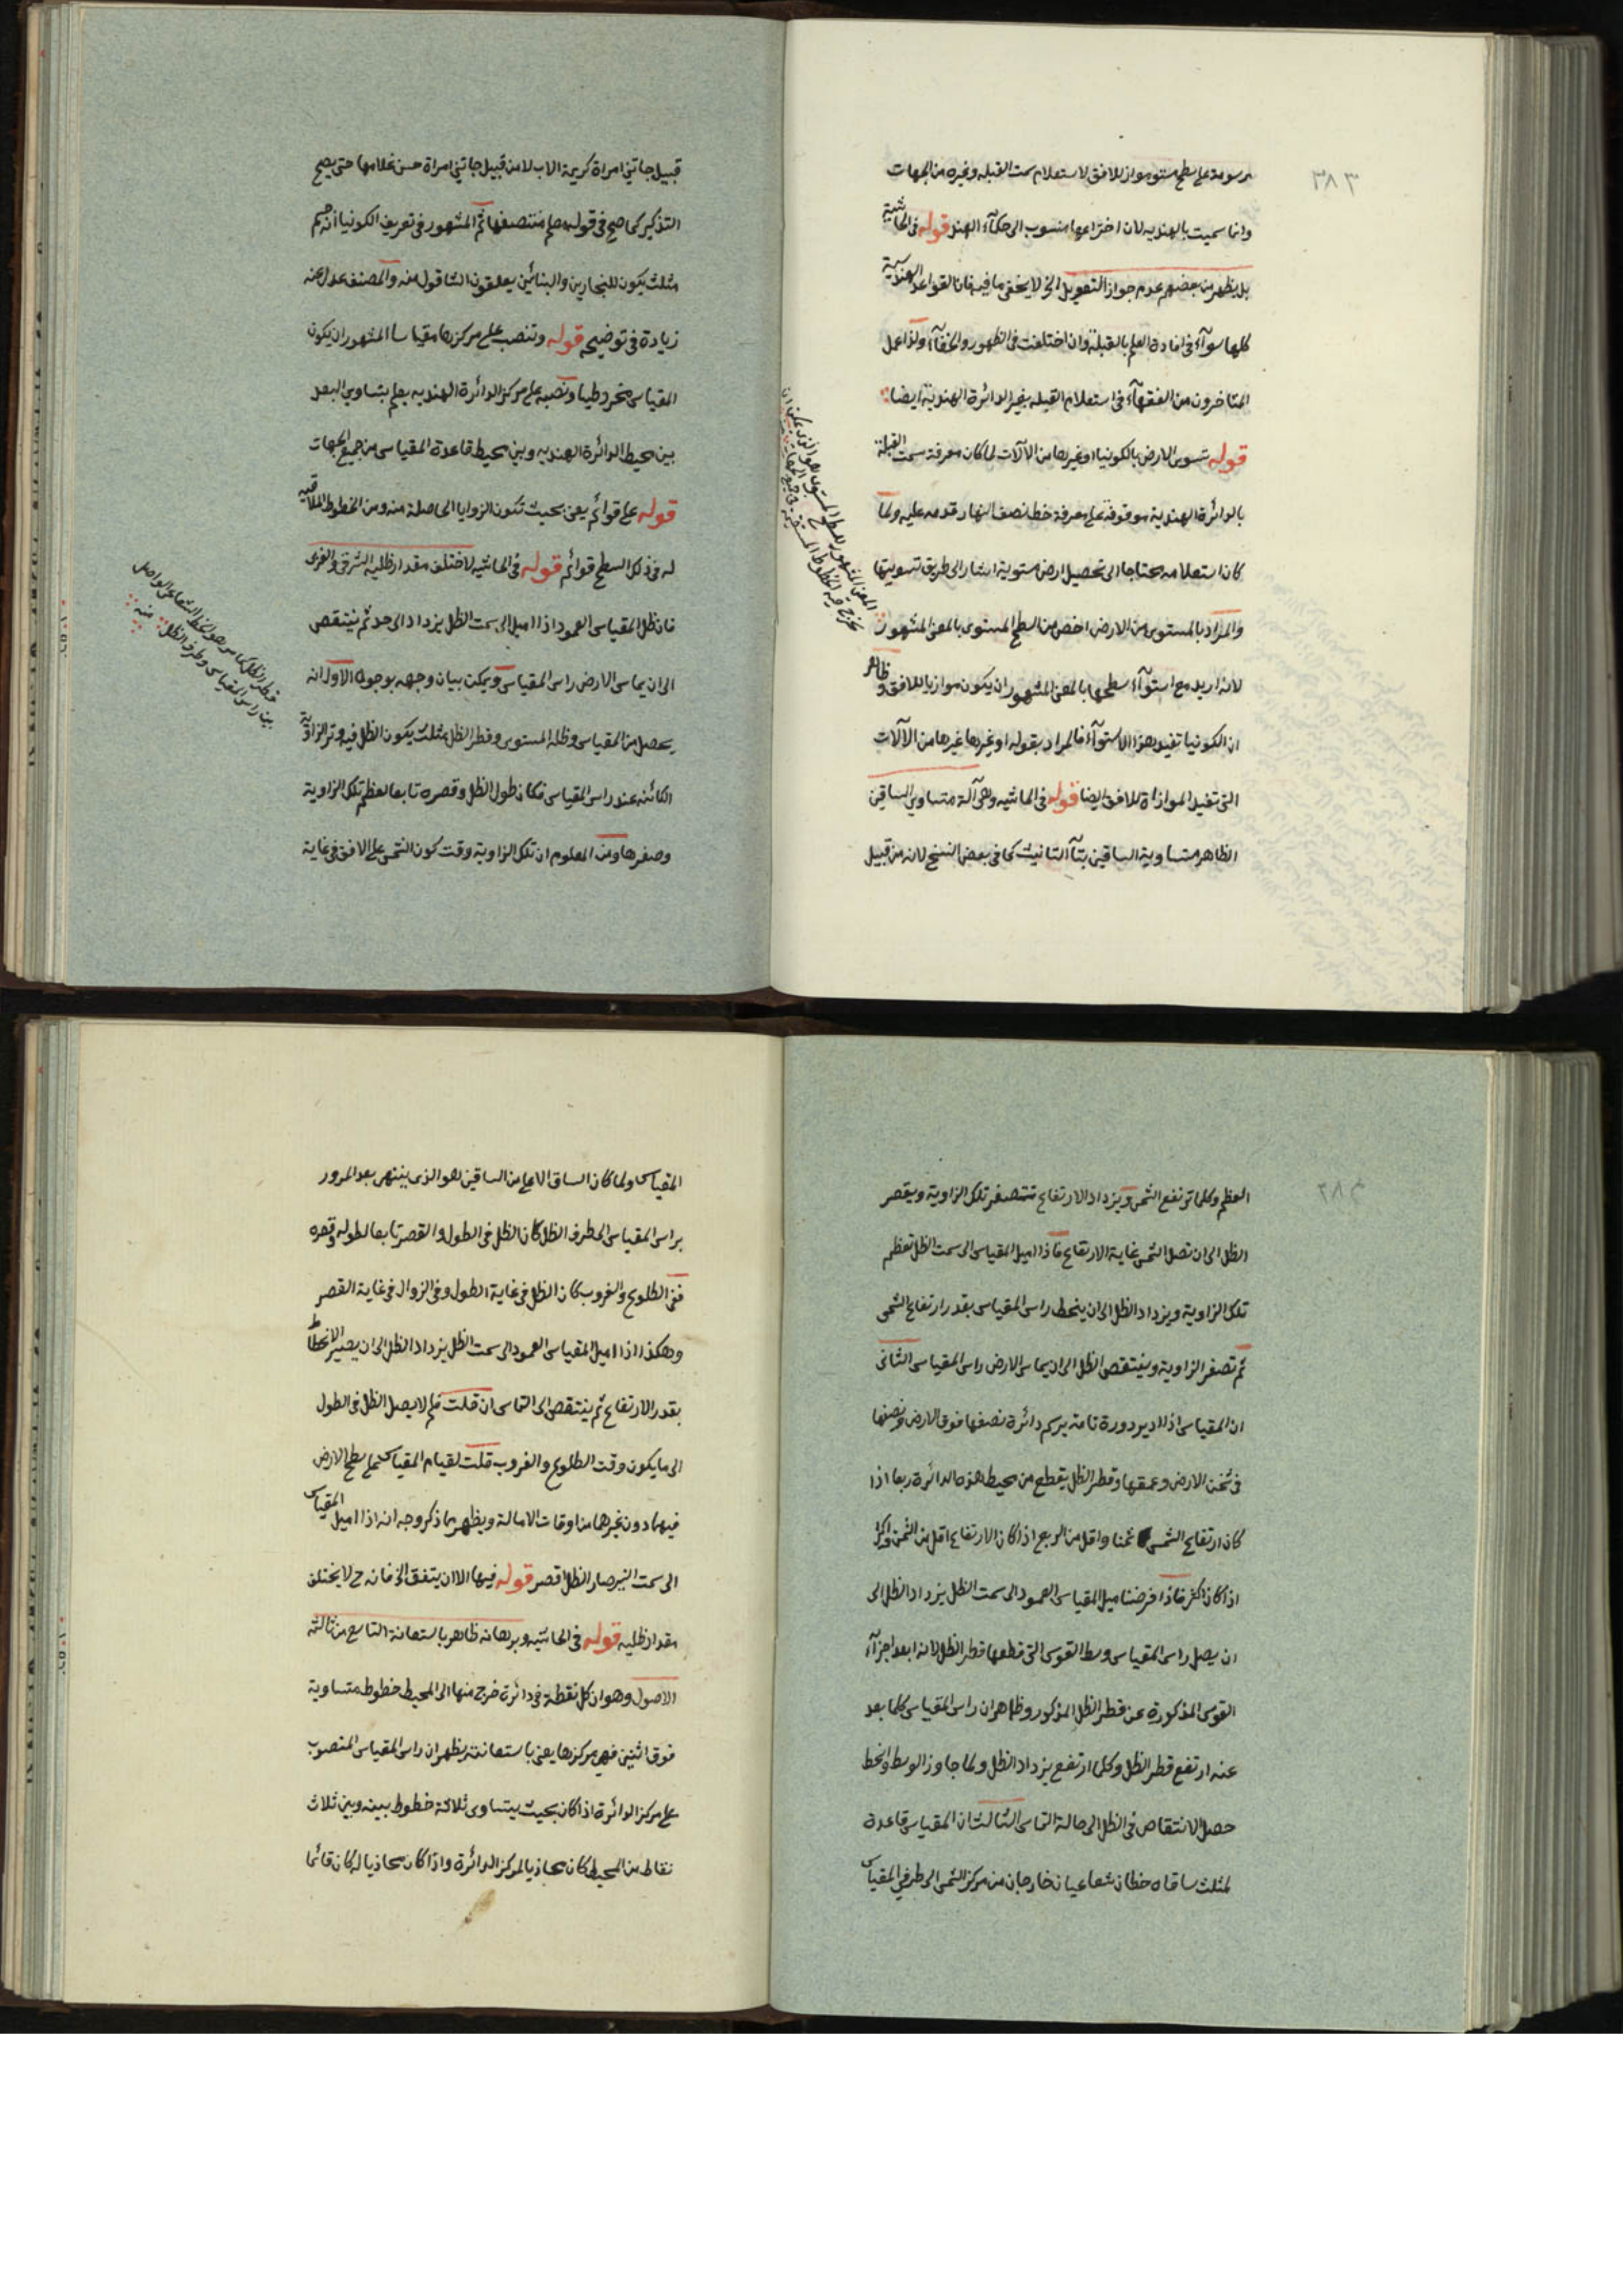 ٣٨٣
مرسومة على سطح مستو مواز للافق لاستعلام سمت القبله وغيره من الجهات
وانما سميت بالهنديه لان اختراعها منسوب الى حكمآء الهند قوله فى الحاشية
بل يظهر من بعضهم عدم جواز التعويل الخ لا يخفى ما فيه فان القواعد الهندسية
كلها سوآء فى افادة العلم بالقبلة وان اختلفت فى الظهور والخفآء ولذا عمل
المتاخرون من الفقهآء فى استعلام القبله بغير الدائرة الهندية ايضا
قوله تسوى الارض بالكونيا او غيرها من الآلات لما كان معرفة سمت القبلة
بالدائرة الهندية موقوفة على معرفة خط نصف النهار قدمه عليه ولما
كان استعلامه محتاجا الى تحصيل ارض مستوية اشار الى طريق تسويتها
والمراد بالمستوى من الارض اخص من السطح المستوى بالمعنى المشهور
لانه اريد مع استوآء سطحها بالمعنى المشهور ان يكون موازيا للافق وظاهر
ان الكونيا تفيد هذا الاستوآء فالمراد بقوله او غيرها غيرها من الآلات
التى تفيد الموازاة للافق ايضا قوله فى الحاشيه وهى آلة متساوى الساقين
الظاهر متساوية الساقين بتآء التانيث كما فى بعض النسخ لانه من قبيل
المعنى المشهور للسطح المستوى هو الذى يمكن ان
يخرج فيه الخطوط المستقيمة فى جميع الجهات
قبيل جائتنى امراة كريمة الاب لا من قبيل جائتنى امراة حسن غلامها حتى يصح
التذكير كما صح فى قوله معلم منتصفها ثم المشهور فى تعريف الكونيا انه جسم
مثلث يكون للنجارين والبنائين يعلقون الشاقول منه والمصنف عدل عنه
زيادة فى توضيحه قوله وتنصب على مركزها مقياسا المشهور ان يكون
المقياس مخروطيا ونصبه على مركز الدائرة الهنديه يعلم بتساوى البعد
بين محيط الدائرة الهنديه وبين محيط قاعدة المقياس من جميع الجهات
قوله على قوائم يعنى بحيث تكون الزوايا الحاصلة منه ومن الخطوط الملاقيه
له فى ذلك السطح قوائم قوله فى الحاشيه لاختلف مقدار ظليه الشرقى والغربى
فان ظل المقياس العمود اذا اميل الى سمت الظل يزداد الى حد ثم ينتقص
الى ان يماس الارض راس المقياس ويمكن بيان وجهه بوجوه الاول انه
يحصل من المقياس وظله المستوى وقطر الظل مثلث يكون الظل فيه وتر الزاوية
الكائنه عند راس المقياس فكان طول الظل وقصره تابعا لعظم تلك الزاوية
وصغرها ومن المعلوم ان تلك الزاوية وقت كون الشمس على الافق فى غاية
قطر الظل كما مر هو الخط الشعاعى الواصل
بين راس المقياس وطرف الظل منه
٣٨٤
العظم وكلما ترتفع الشمس ويزداد الارتفاع تتصغر تلك الزاوية ويقصر
الظل الى ان تصل الشمس غاية الارتفاع فاذا اميل المقياس الى سمت الظل تعظم
تلك الزاوية ويزداد الظل الى ان ينحط راس المقياس بقدر ارتفاع الشمس
ثم تصغر الزاوية وينتقص الظل الى ان يماس الارض راس المقياس الثانى
ان المقياس اذا ادير دورة تامة يرسم دائرة نصفها فوق الارض ونصفها
فى ثخن الارض وعمقها وقطر الظل يقطع من محيط هذه الدائرة ربعا اذا
كان ارتفاع الشمس ثمنا واقل من الربع اذا كان الارتفاع اقل من الثمن واكثر
اذا كان اكثر فاذا فرضنا ميل المقياس العمود الى سمت الظل يزداد الظل الى
ان يصل راس المقياس وسط القوس التى قطعها قطر الظل لانه ابعد اجزآء
القوس المذكورة عن قطر الظل المذكور وظاهر ان راس المقياس كلما بعد
عنه ارتفع قطر الظل وكلما ارتفع يزداد الظل ولما جاوز الوسط وانحط
حصل الانتقاص فى الظل الى حالة التماس الثالث ان المقياس قاعدة
لمثلث ساقاه خطان شعاعيان خارجان من مركز الشمس الى طرفى المقياس
المقياس ولما كان الساق الاعلى من الساقين هو الذى ينتهى بعد المرور
براس المقياس الى طرف الظل كان الظل فى الطول والقصر تابعا لطوله وقصره
ففى الطلوع والغروب كان الظل فى غاية الطول وفى الزوال فى غاية القصر
وهكذا اذا اميل المقياس العمود الى سمت الظل يزداد الظل الى ان يصير الانحطاط
بقدر الارتفاع ثم ينتقص الى التماس ان قلت فلم لا يصل الظل فى الطول
الى ما يكون وقت الطلوع والغروب قلت لقيام المقياس على سطح الارض
فيهما دون غيرهما من اوقات الامالة ويظهر مما ذكر وجه انه اذا اميل المقياس
الى سمت النير صار الظل اقصر قوله فيها الا ان يتفق الخ فانه ح لا يختلف
مقدار ظليه قوله فى الحاشيه وبرهانه ظاهر باستعانة التاسع من ثالثه
الاصول وهو ان كل نقطة فى دائرة خرج منها الى المحيط خطوط متساوية
فوق اثنين فهى مركزها يعنى باستعانته يظهر ان راس المقياس المنصوب
على مركز الدائرة اذا كان بحيث يتساوى ثلاثة خطوط بينه وبين ثلاث
نقاط من المحيط كان محاذيا لمركز الدائرة واذا كان محاذيا له كان قائما